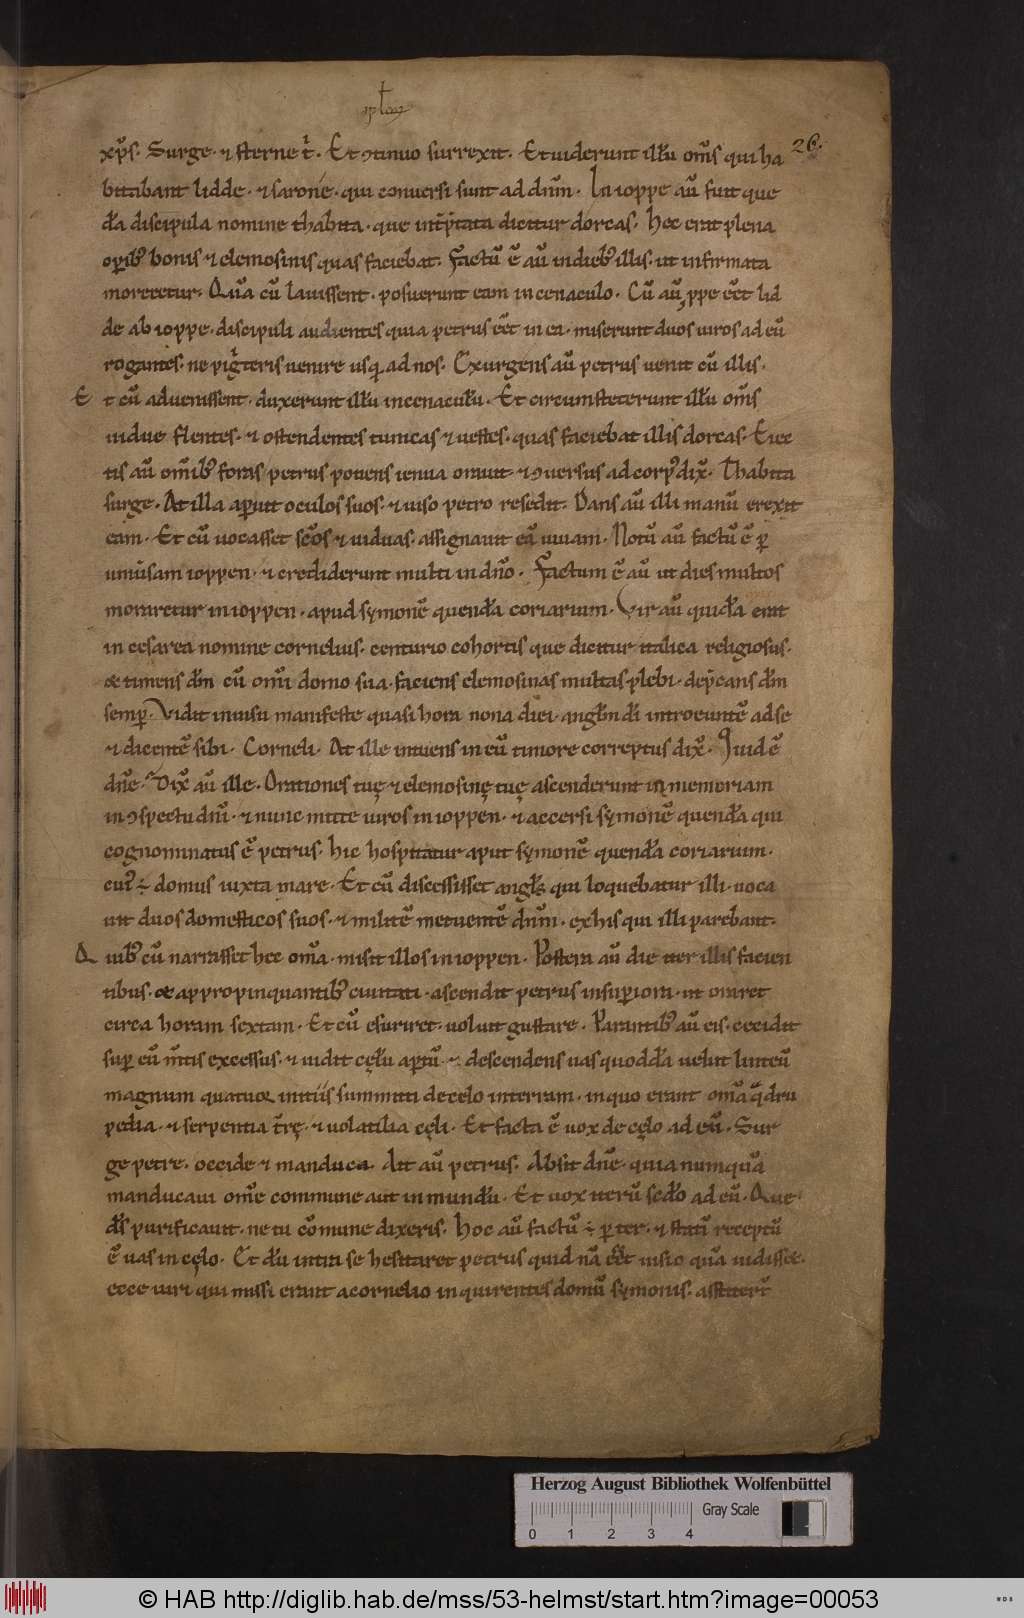 aplox
26.
xp̄s. Surge. ⁊ sterne t̉. Et ꝯtinuo surrexit. Et uiderunt illū om̄s qui ha
bitabant lidde. ⁊ sarone. qui conuersi sunt ad dn̄m. In ioppe aū fuit que
dā discipula nomine thabita. que int̄p̄tata dicitur dorcas. Hec erat plena
oꝑibꝫ bonis ⁊ elemosinis quas faciebat. Factū ē aū in diebꝫ illis. ut infirmata
moreretur. Qua cū lauissent. posuerunt eam in cenaculo. Cū aū ꝓpe eēt lid
de ab ioppe. discipuli audientes quia petrus eēt in ea. miserunt duos uiros ad eū
rogantes. ne pigriteris uenire usq̄ ad nos. Exurgens aū petrus uenit cū illis.
Et cū aduenisset. duxerunt illū in cenaculū. Et circumsteterunt illū om̄s
uidue flentes. ⁊ ostendentes tunicas ⁊ uestes. quas faciebat illis dorcas. Eiec
tis aū om̄ibꝫ foras petrus ponens ienua orauit ⁊ ꝯuersus ad corpꝰ dix̄. Thabita
surge. At illa aꝑuit oculos suos. ⁊ uiso petro resedit. Dans aū illi manū erexit
eam. Et cū uocasset sc̄os ⁊ uiduas. assignauit eā uiuam. Notū aū factū ē ꝑ
uniūsam ioppen. ⁊ crediderunt multi in dn̄o. Factum ē aū ut dies multos
moraretur in ioppen. apud sẏmonē quendā coriarium. Vir aū quidā erat
in cesarea nomine cornelius. centurio cohortis que dicitur italica religiosus.
& timens dm̄ cū omī domo sua. faciens elemosinas multas plebi. dep̄cans dm̄
semꝑ. Vidit in uisu manifeste quasi hora nona diei. anglm̄ di introeuntē ad se
⁊ dicentē sibi. Corneli. At ille intuens in eū timore correptus dix̄. Quid ē
dn̄e. Dix̄ aū ille. Orationes tuę ⁊ elemosinę tuę ascenderunt in memoriam
in ꝯspectu dn̄i. ⁊ nunc mitte uiros in ioppen. ⁊ accersi sẏmonē quendā qui
cognominatus ē petrus. hic hospitatur aput sẏmonē quendā coriarium.
cuiꝰ ÷ domus iuxta mare. Et cū discessisset angls̄ qui loquebatur illi. uoca
uit duos domesticos suos. ⁊ militē metuentē dn̄m. ex his qui illi parebant.
Quibꝫ cū narrasset hec om̄a. misit illos in ioppen. Postera aū die iter illis facien
tibus. & appropinquantibꝫ ciuitati. ascendit petrus in suꝑiora. ut oraret
circa horam sextam. Et cū esuriret. uoluit gustare. Parantibꝫ aū eis. cecidit
suꝑ eū m̄tis excessus. ⁊ uidit cęlū aꝑtū. ⁊ descendens uas quoddā uelut linteū
magnum quatuoꝝ initiis summitti de celo in terram. in quo erant om̄a q̄dru
pedia. ⁊ serpentia t̄rę. ⁊ uolatilia cęli. Et facta ē uox de cęlo ad eū. Sur
ge petre. occide ⁊ manduca. Ait aū petrus. Absit dn̄e. quia numquā
manducaui om̄e commune aut inmundū. Et uox iterū sc̄do ad eū. Que
ds̄ purificauit. ne tu cōmune dixeris. Hoc aū factū ÷ ꝑ ter. ⁊ statī receptū
ē uas in cęlo. Et dū intra se hesitaret petrus quid nā eēt uisio quā uidisset.
ecce uiri qui missi erant a cornelio inquirentes domū sẏmonis. astiterūt
Herzog August Bibliothek Wolfenbüttel
Gray Scale
0 1 2 3 4
© HAB http://diglib.hab.de/mss/53-helmst/start.htm?image=00053